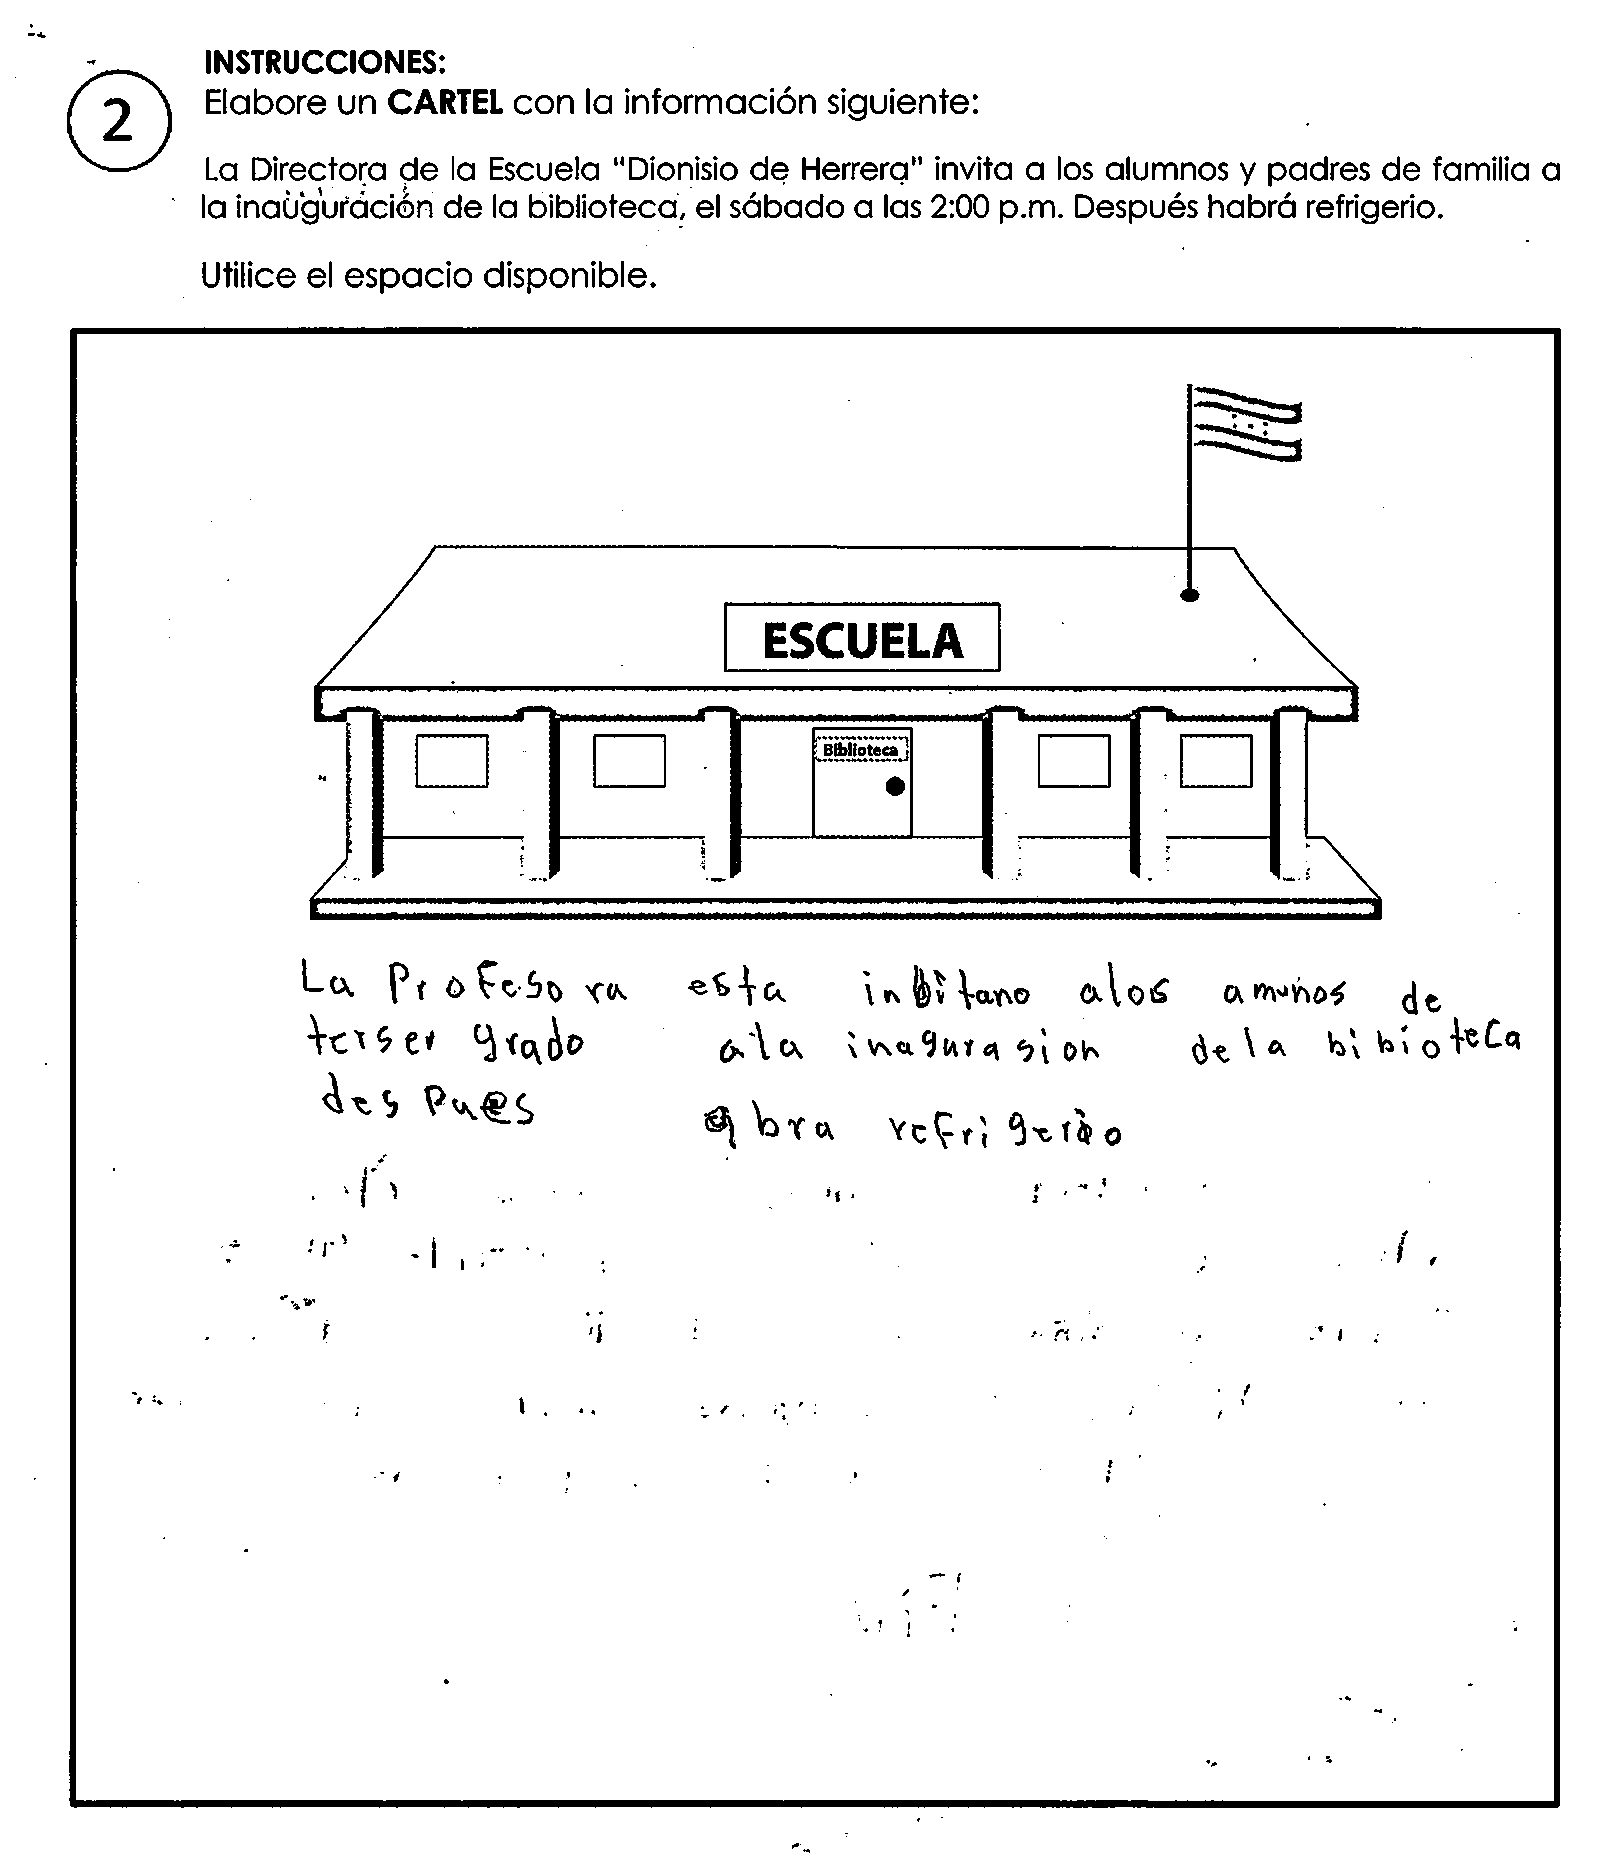 INSTRUCCIONES:
2
Elabore un CARTEL con la información siguiente:
La Directora de la Escuela "Dionisio de Herrera" invita a los alumnos y padres de familia a
la inauguración de la biblioteca, el sábado a las 2:00 p.m. Después habrá refrigerio.
Utilice el espacio disponible.
ESCUELA
Biblioteca
La Profesora esta inbitano alos amunos de
terser grado ala inagurasion dela bibioteca
despues abra refrigerio